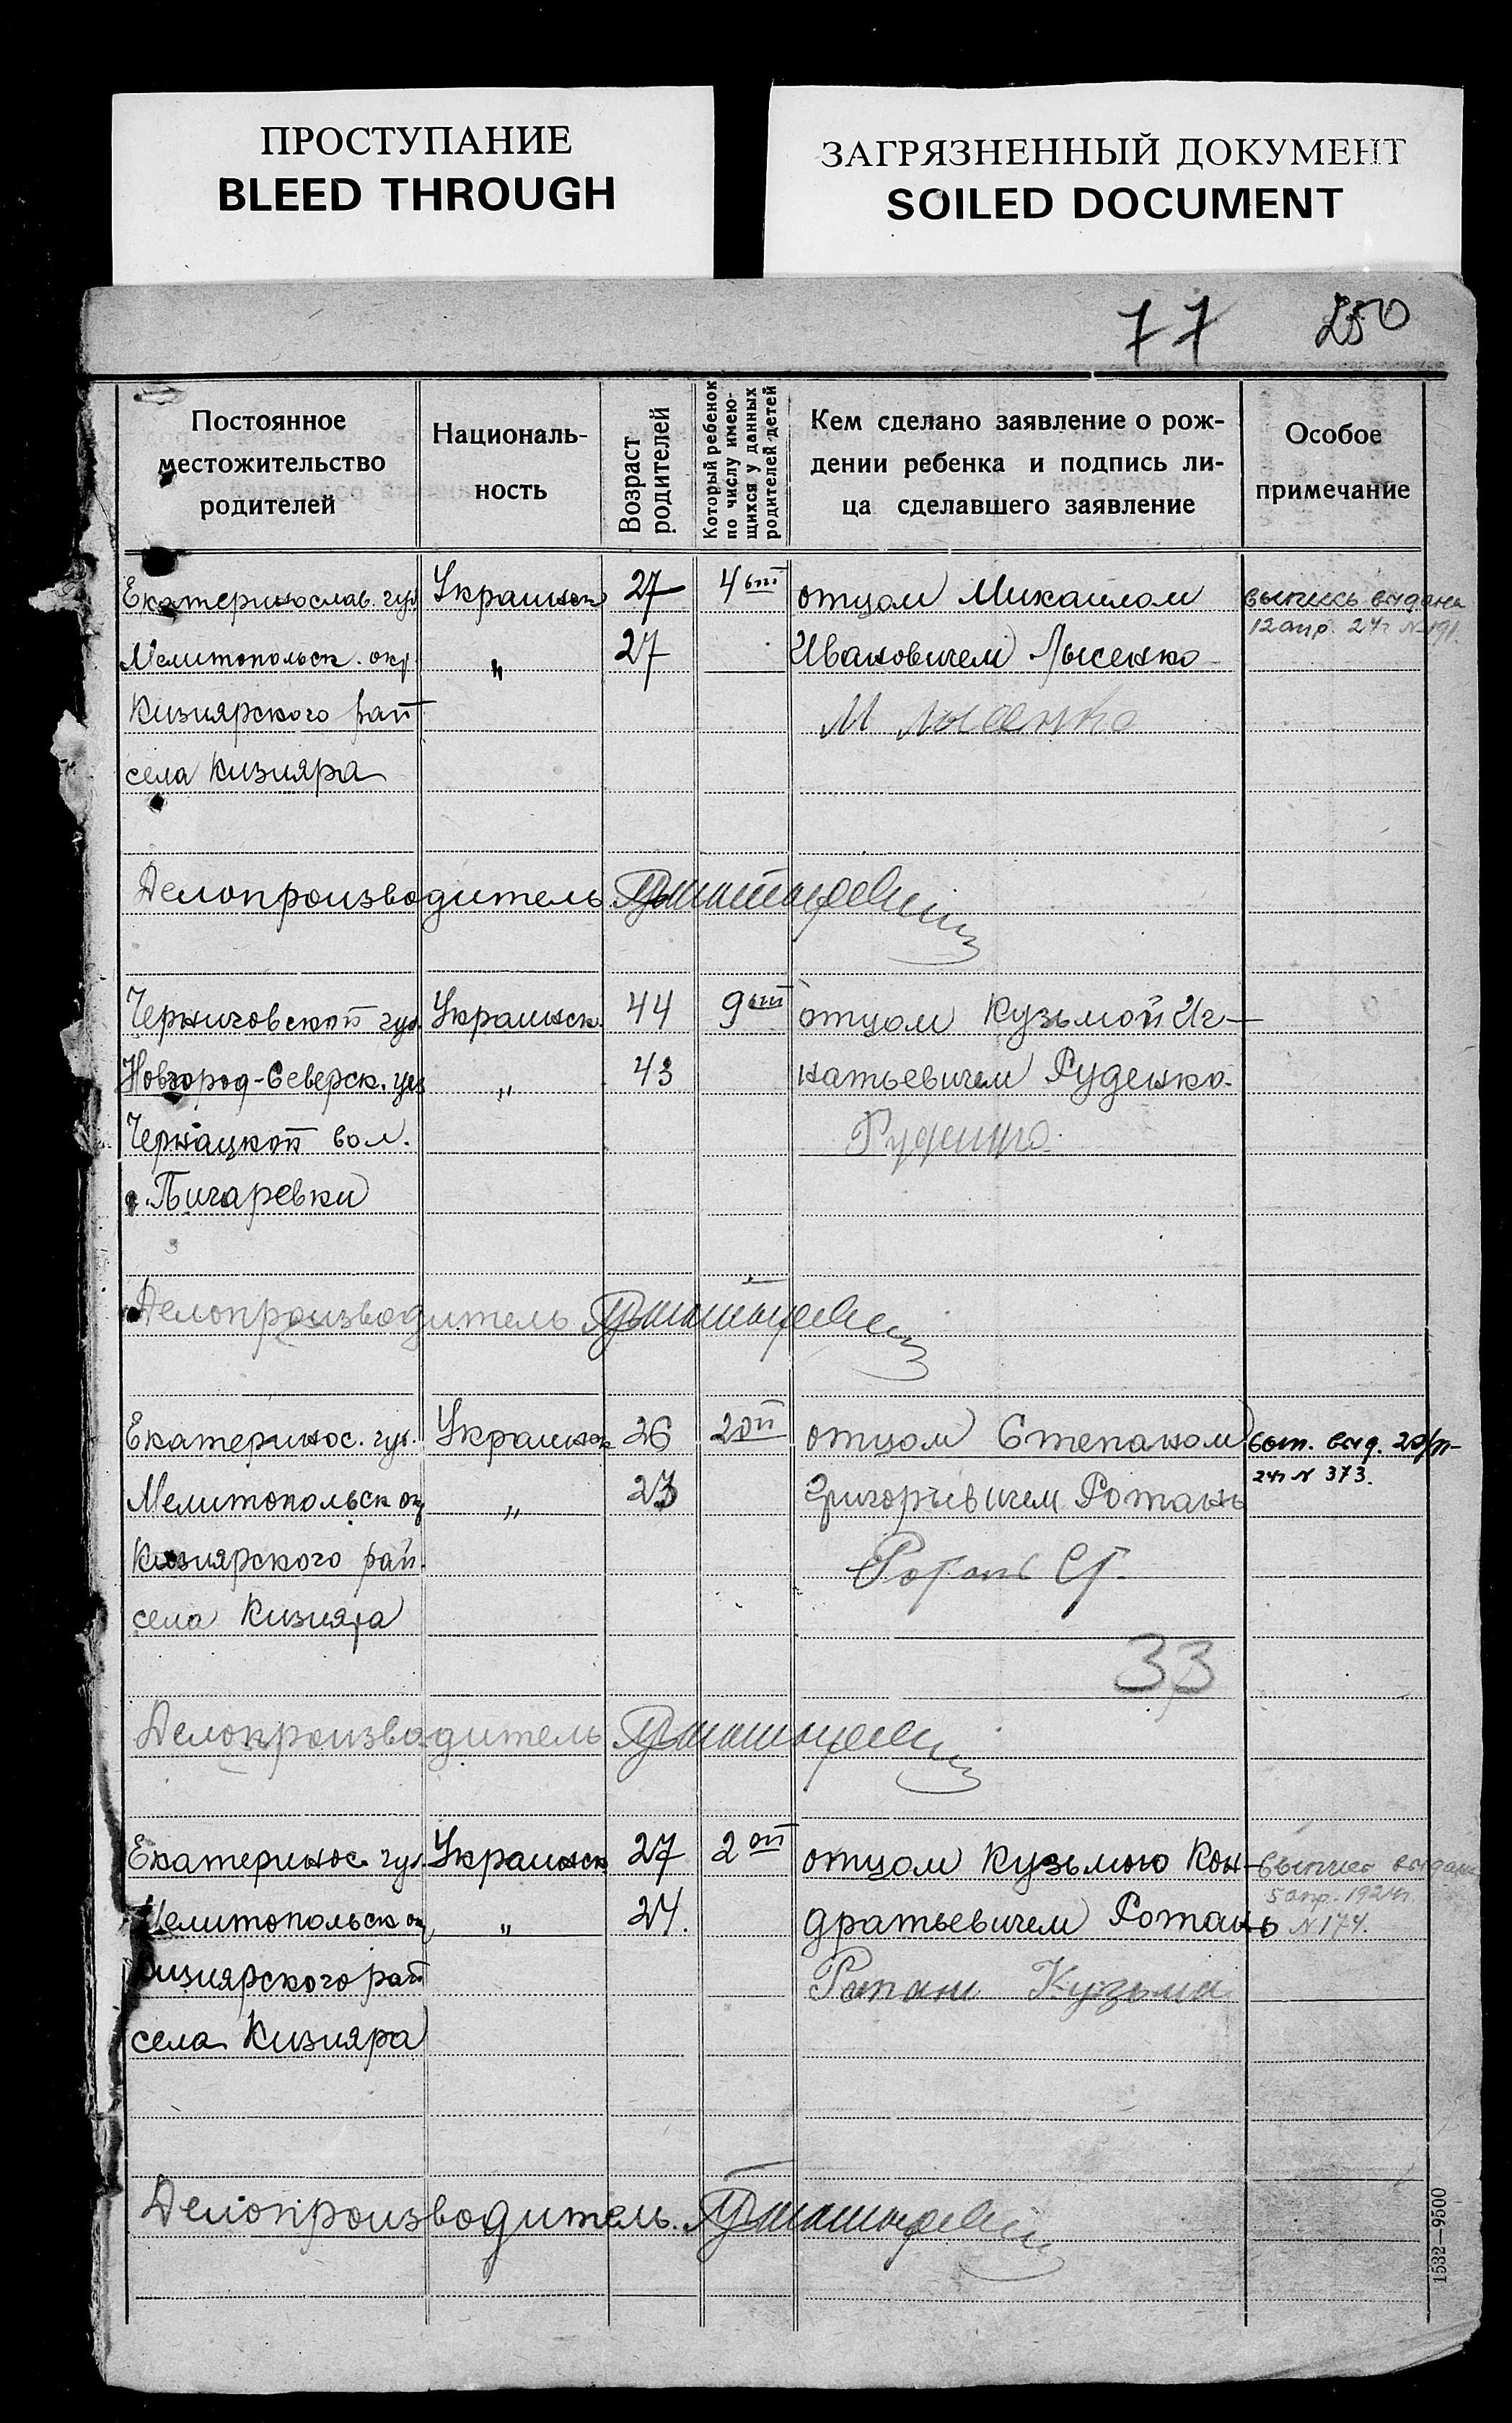 ПРОСТУПАНИЕ
BLEED THROUGH
ЗАГРЯЗНЕННЫЙ ДОКУМЕНТ
SOILED DOCUMENT
77 250
Постоянное местожительство родителей
Националь-ность
Возраст родителей
Который ребенок по числу имею-щихся у данных родителей детей
Кем сделано заявление о рож-дении ребенка и подпись ли-ца сделавшего заявление
Особое примечание
Екатеринослав. губ. Украинск 27 4ый отцом Михаилом выпись выдана
12 апр. 24г N 191.
Мелитопольск. окр. „ 27 Ивановичем Лысенко
Кизиярского рай М Лысенко
села Кизияра
Делопроизводитель
Черниговской губ. Украинск. 44 9ый отцом Кузьмой Иг-
Новгород-Северск. уез „ 43 натьевичем Руденко.
Чернацкой вол. Руденко.
с. Пигаревки
Делопроизводитель
Екатеринос. губ. Украинск 26 2ой отцом Степаном вып. выд. 20/
24г N 373.
Мелитопольск ок „ 23 Григорьевичем Ротань
Кизиярского рай. Ротань Ст.
села Кизияра
33
Делопроизводитель
Екатеринос. губ. Украинск 27 2ой отцом Кузьмою Кон- выпись выдана
5 апр. 1924г.
Мелитопольск ок „ 24. дратьевичем Ротань N 174.
Кизиярского рай Ратань Кузьма
села Кизияра
Делопроизводитель.
1532—9500